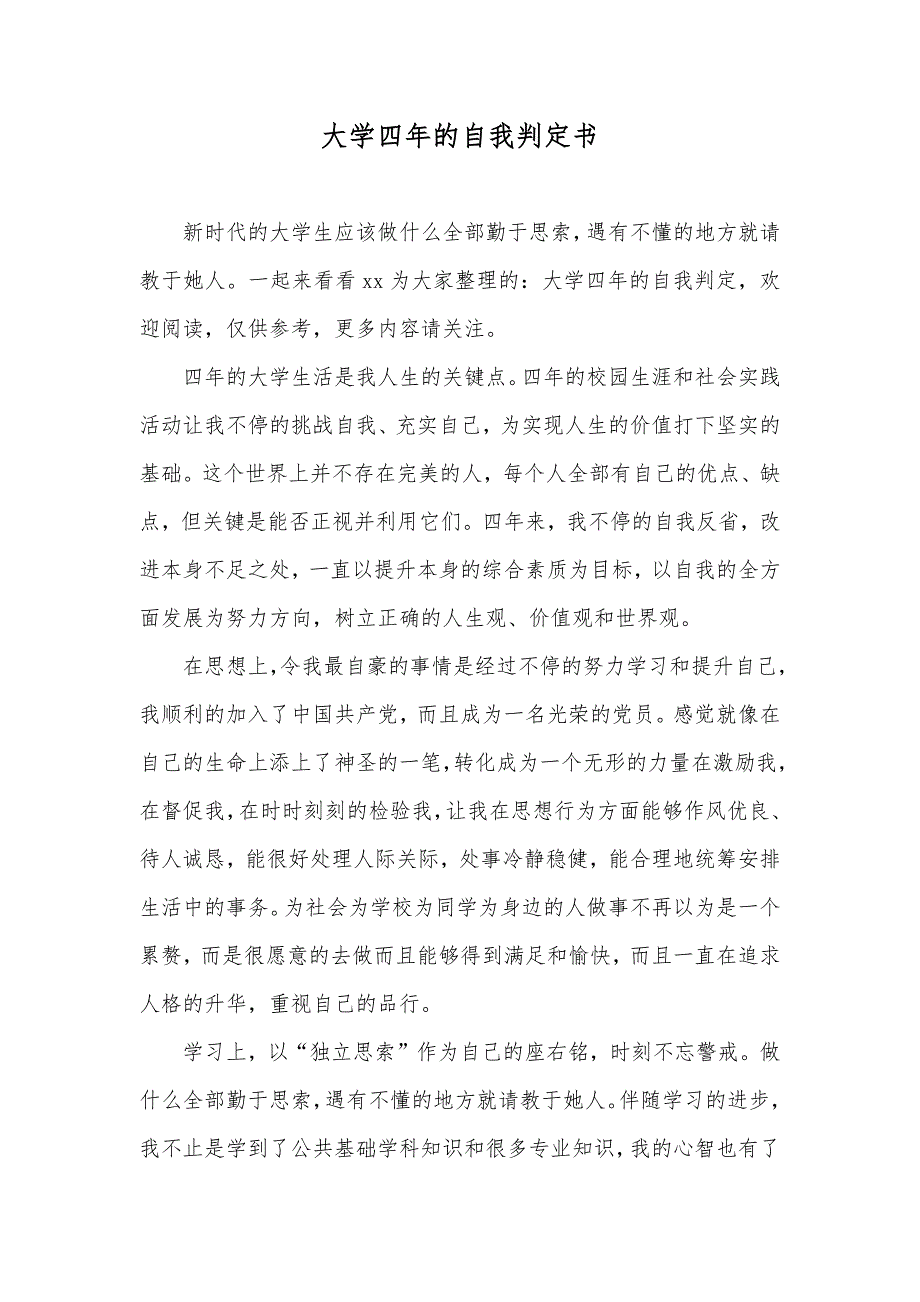 大学四年的自我判定书
新时代的大学生应该做什么全部勤于思索，遇有不懂的地方就请
教于她人。一起来看看 xx 为大家整理的：大学四年的自我判定，欢
迎阅读，仅供参考，更多内容请关注。
四年的大学生活是我人生的关键点。四年的校园生涯和社会实践
活动让我不停的挑战自我、充实自己，为实现人生的价值打下坚实的
基础。这个世界上并不存在完美的人，每个人全部有自己的优点、缺
点，但关键是能否正视并利用它们。四年来，我不停的自我反省，改
进本身不足之处，一直以提升本身的综合素质为目标，以自我的全方
面发展为努力方向，树立正确的人生观、价值观和世界观。
在思想上，令我最自豪的事情是经过不停的努力学习和提升自己，
我顺利的加入了中国共产党，而且成为一名光荣的党员。感觉就像在
自己的生命上添上了神圣的一笔，转化成为一个无形的力量在激励我，
在督促我，在时时刻刻的检验我，让我在思想行为方面能够作风优良、
待人诚恳，能很好处理人际关际，处事冷静稳健，能合理地统筹安排
生活中的事务。为社会为学校为同学为身边的人做事不再以为是一个
累赘，而是很愿意的去做而且能够得到满足和愉快，而且一直在追求
人格的升华，重视自己的品行。
学习上，以“独立思索”作为自己的座右铭，时刻不忘警戒。做
什么全部勤于思索，遇有不懂的地方就请教于她人。伴随学习的进步，
我不止是学到了公共基础学科知识和很多专业知识，我的心智也有了